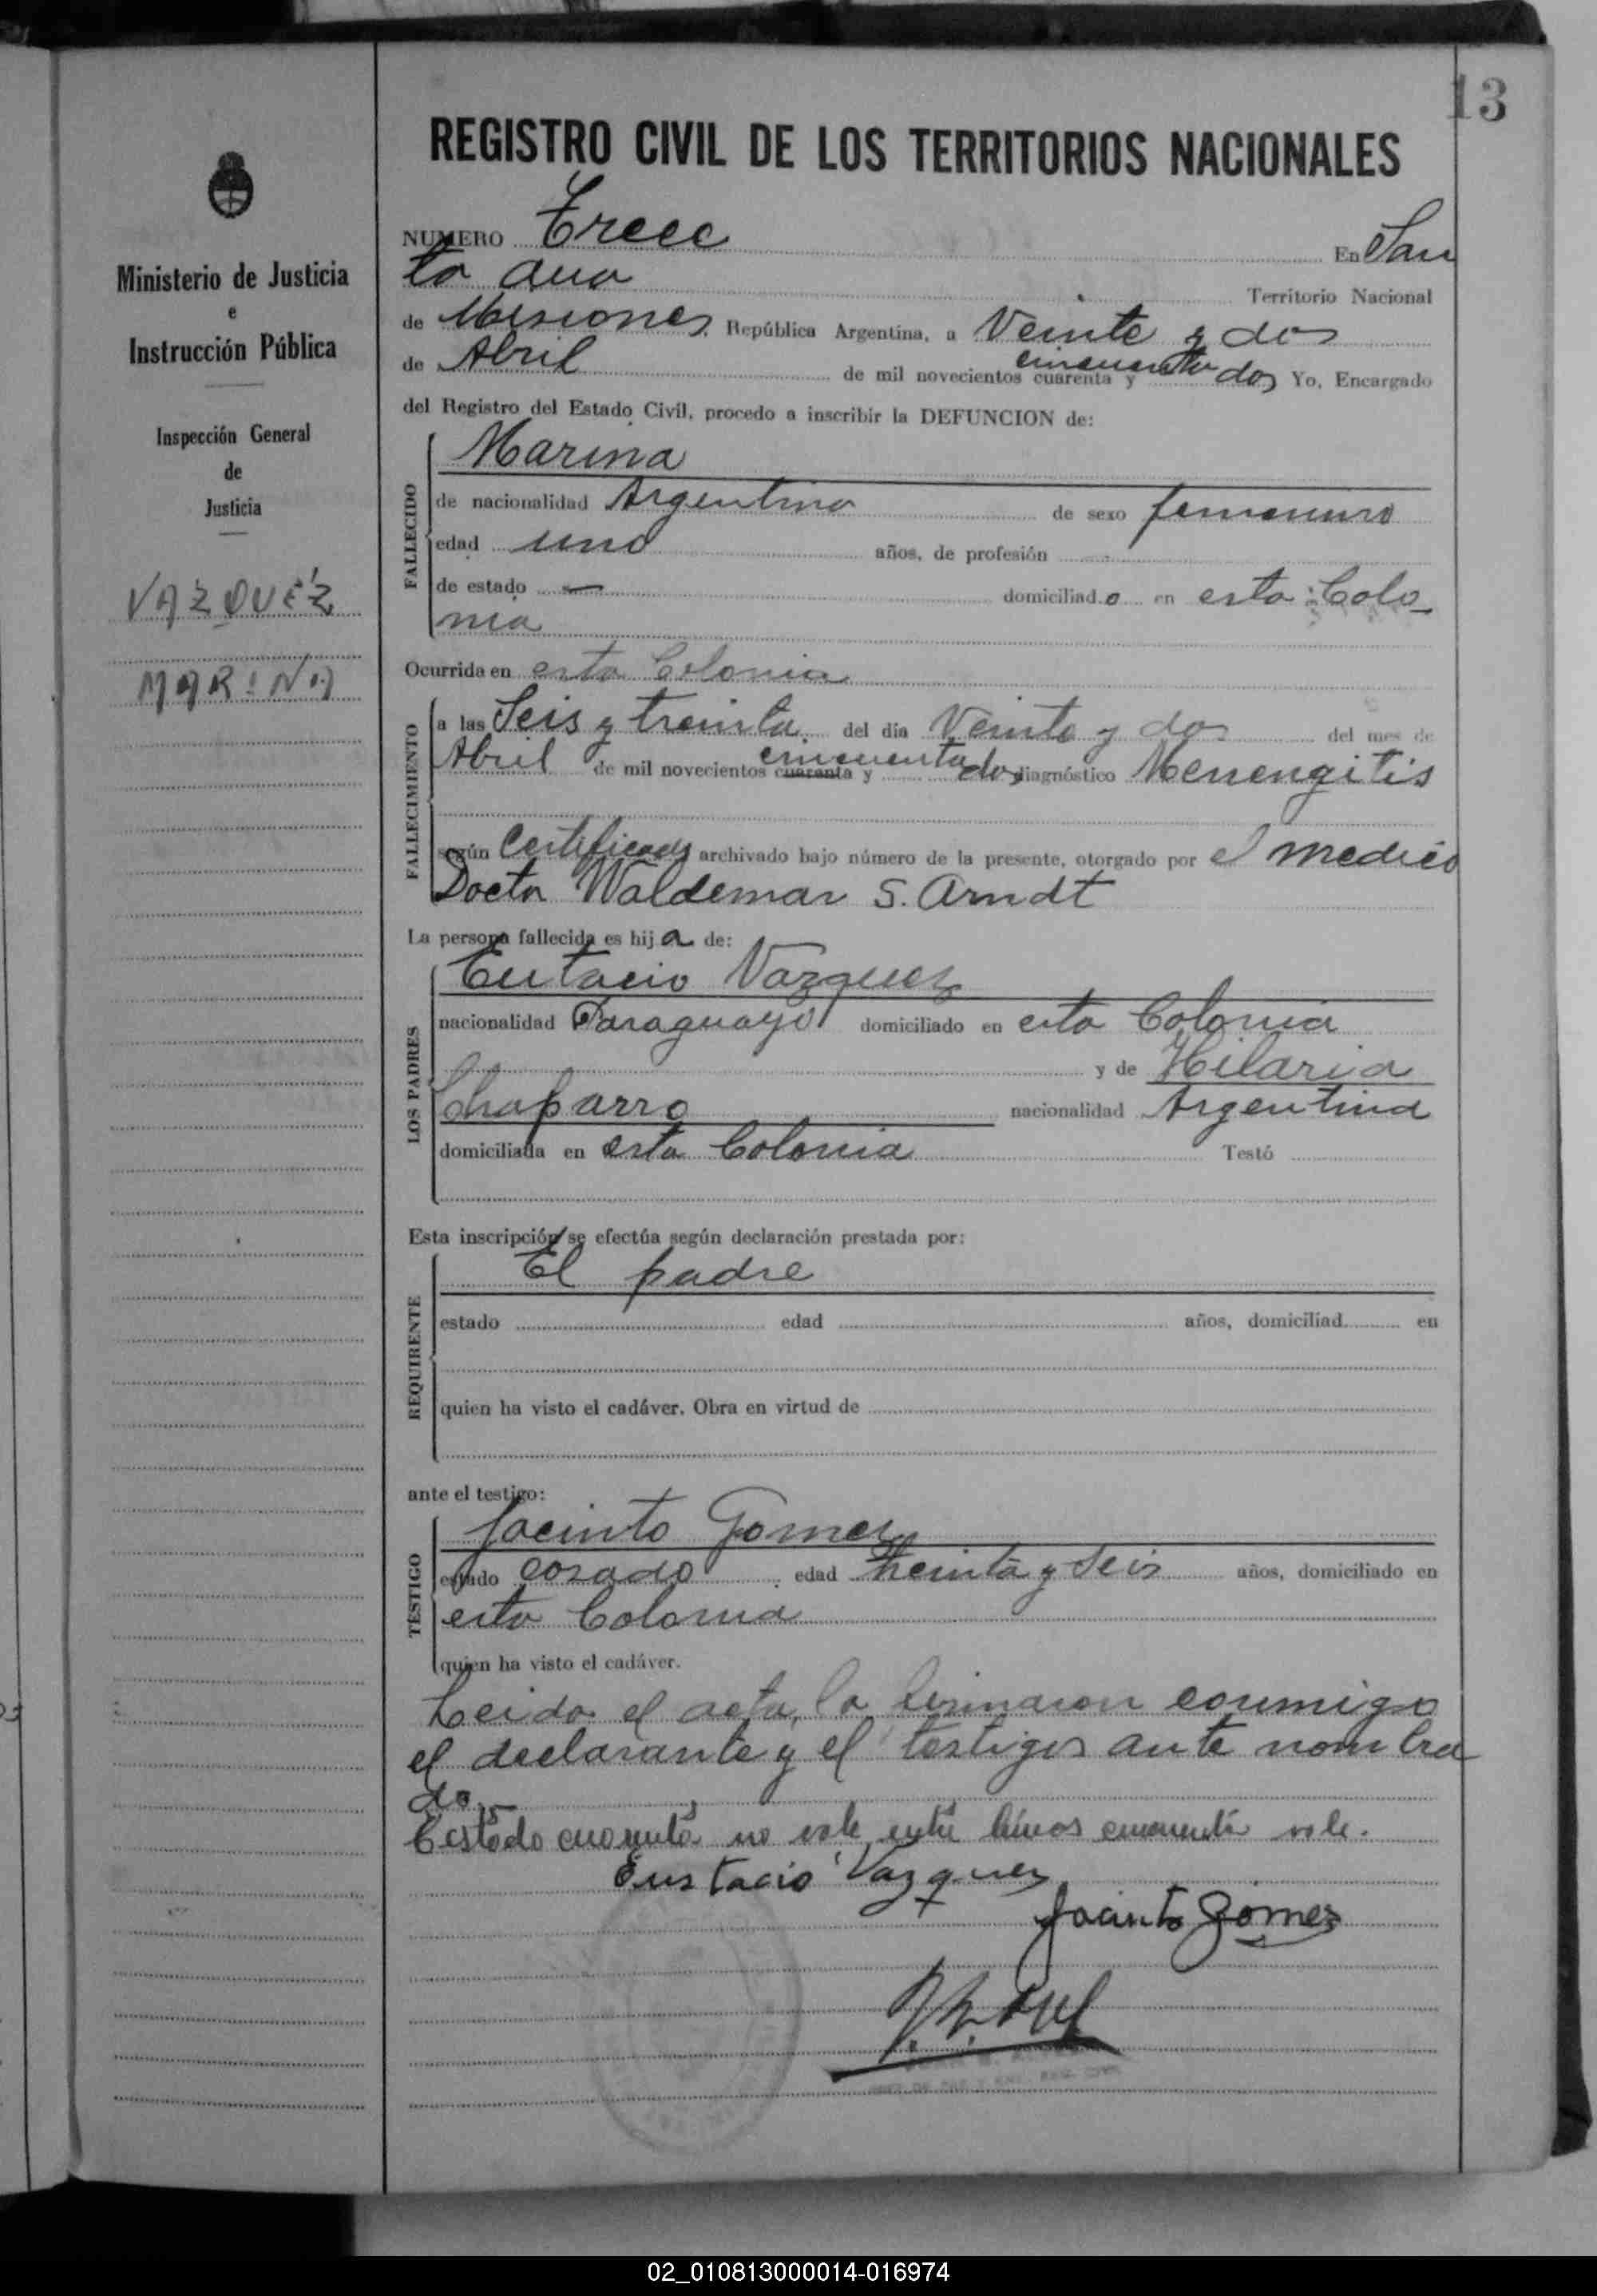 13
REGISTRO CIVIL DE LOS TERRITORIOS NACIONALES
Ministerio de Justicia
e
Instrucción Pública
Inspección General
de
Justicia
VAZQUEZ
MARINA
NUMERO Trece En San
ta Ana Territorio Nacional
de Misiones, República Argentina, a Veinte y dos
de Abril de mil novecientos cuarenta y cincuenta dos Yo, Encargado
del Registro del Estado Civil, procedo a inscribir la DEFUNCION de:
FALLECIDO
Marina
de nacionalidad Argentina de sexo femenino
edad uno años, de profesión
de estado — domiciliado en esta Colo-
nia
Ocurrida en esta Colonia
FALLECIMIENTO
a las Seis y treinta del día Veinte y dos del mes de
Abril de mil novecientos cuarenta y cincuenta dos diagnóstico Menengitis
según Certificado archivado bajo número de la presente, otorgado por el medico
Doctor Waldemar S. Arndt
La persona fallecida es hija de:
LOS PADRES
Eutacio Vazquez
nacionalidad Paraguayo domiciliado en esta Colonia
y de Hilaria
Chaparro nacionalidad Argentina
domiciliada en esta Colonia Testó
Esta inscripción se efectúa según declaración prestada por:
REQUIRENTE
El padre
estado edad años, domiciliad en
quien ha visto el cadáver. Obra en virtud de
ante el testigo:
TESTIGO
Jacinto Gomez
estado casado edad treinta y Seis años, domiciliado en
esta Colonia
quien ha visto el cadáver.
Leida el acta, la firmaron conmigo
el declarante y el testigos ante nombra
do.—
Testado cuarenta no vale entre lineas cincuenta vale.
Eustacio Vazquez
Jacinto Gomez
02_010813000014-016974